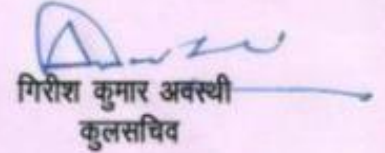 गिरीश कुमार अवस्थी
कुलसचिव